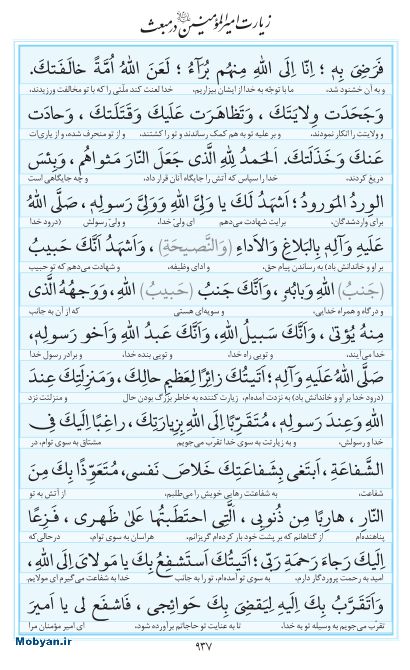 زیارت امیرالمؤمنین در مبعث
فَرَضِیَ بِهِ ؛ اِنّا اِلَی اللهِ مِنهُم بُرَآءُ ؛ لَعَنَ اللهُ اُمَّةً خالَفَتكَ.
و به آن خشنود شد، ما با توجّه به خدا از ایشان بیزاریم، خدا لعنت کند ملّتی را که با تو مخالفت ورزیدند،
وَ جَحَدَت وِلایَتَكَ ، وَتَظاهَرَت عَلَیكَ وَ قَتَلَتكَ ، وَحادَت
و ولایتت را انکار نمودند، و بر علیه تو به هم کمک رساندند و تو را کشتند، و از تو منحرف شده، و از یاری‌ات
عَنكَ وَ خَذَلَتكَ. اَلحَمدُ لِلّٰهِ الَّذی جَعَلَ النّارَ مَثواهُم ، وَبِئسَ
دریغ کردند، خدا را سپاس که آتش را جایگاه آنان قرار داد، و چه جایگاهی است
الوِردُ المَورودُ ؛ اَشهَدُ لَكَ یا وَلِیَّ اللهِ وَوَلِیَّ رَسولِهِ، صَلَّی اللهُ
برای واردشدگان، برایت شهادت می‌دهم ای ولیّ خدا، و ولیّ رسولش (درود خدا
عَلَیهِ وَآلِهِ بِالبَلاغِ وَالاَداءِ (وَالنَّصیحَةِ) ، وَاَشهَدُ اَنَّكَ حَبیبُ
بر او و خاندانش باد) به رساندن پیام حق، و ادای وظیفه، و شهادت می‌دهم که تو حبیب
(جَنبُ) اللهِ وَبابُهُ، وَاَنَّكَ جَنبُ (حَبیبُ) اللهِ ،وَوَجهُهُ الَّذی
و درگاه و همراه خدایی، و سویه‌ای هستی که از آن به جانب
مِنهُ یُؤتیٰ ، وَاَنَّكَ سَبیلُ اللهِ، وَاَنَّكَ عَبدُ اللهِ وَاَخو رَسولِهِ،
خدا می‌آیند، و تویی راه خدا، و تویی بنده خدا، و برادر رسول خدا
صَلَّی اللهُ عَلَیهِ وَآلِهِ ؛ اَتَیتُكَ زائِرًا لِعَظیمِ حالِكَ ، وَمَنزِلَتِكَ عِندَ
(درود خدا بر او و خاندانش باد) به نزدت آمده‌ام، زیارت کننده به خاطر بزرگ بودن حال و منزلتت نزد
اللهِ وَعِندَ رَسولِهِ، مُتَقَرِّبًا اِلَی اللهِ بِزِیارَتِكَ ، راغِبًا اِلَیكَ فِی
خدا و رسولش، و به زیارتت به سوی خدا تقرّب می‌جویم مشتاق به سوی توام، در
الشَّفاعَةِ ، اَبتَغی بِشَفاعَتِكَ خَلاصَ نَفسی، مُتَعَوِّذًا بِكَ مِنَ
شفاعت، به شفاعتت رهایی خویش را می‌طلبم، از آتش به تو
النّارِ ، هارِبًا مِن ذُنوبِیَ ، الَّتِی احتَطَبتُها عَلیٰ ظَهری ، فَزِعًا
پناهنده‌ام از گناهانم که بر پشت خود بار کرده‌ام گریزانم، هراسان به سوی توام، درحالی‌که
اِلَیكَ رَجاءَ رَحمَةِ رَبّی ؛ اَتَیتُكَ اَستَشفِعُ بِكَ یا مَولایَ اِلَی اللهِ،
امید به رحمت پروردگار دارم، به سوی تو آمده‌ام، تو را به جانب خدا به شفاعت می‌گیرم ای مولایم،
وَاَتَقَرَّبُ بِكَ اِلَیهِ لِیَقضِیَ بِكَ حَوائِجی ، فَاشفَع لی یا اَمیرَ
تقرّب می‌جویم به وسیله تو به خدا، تا به عنایت تو حاجاتم برآورده شود، ای امیر مؤمنان مرا
۹۳۷
Mobyan.ir